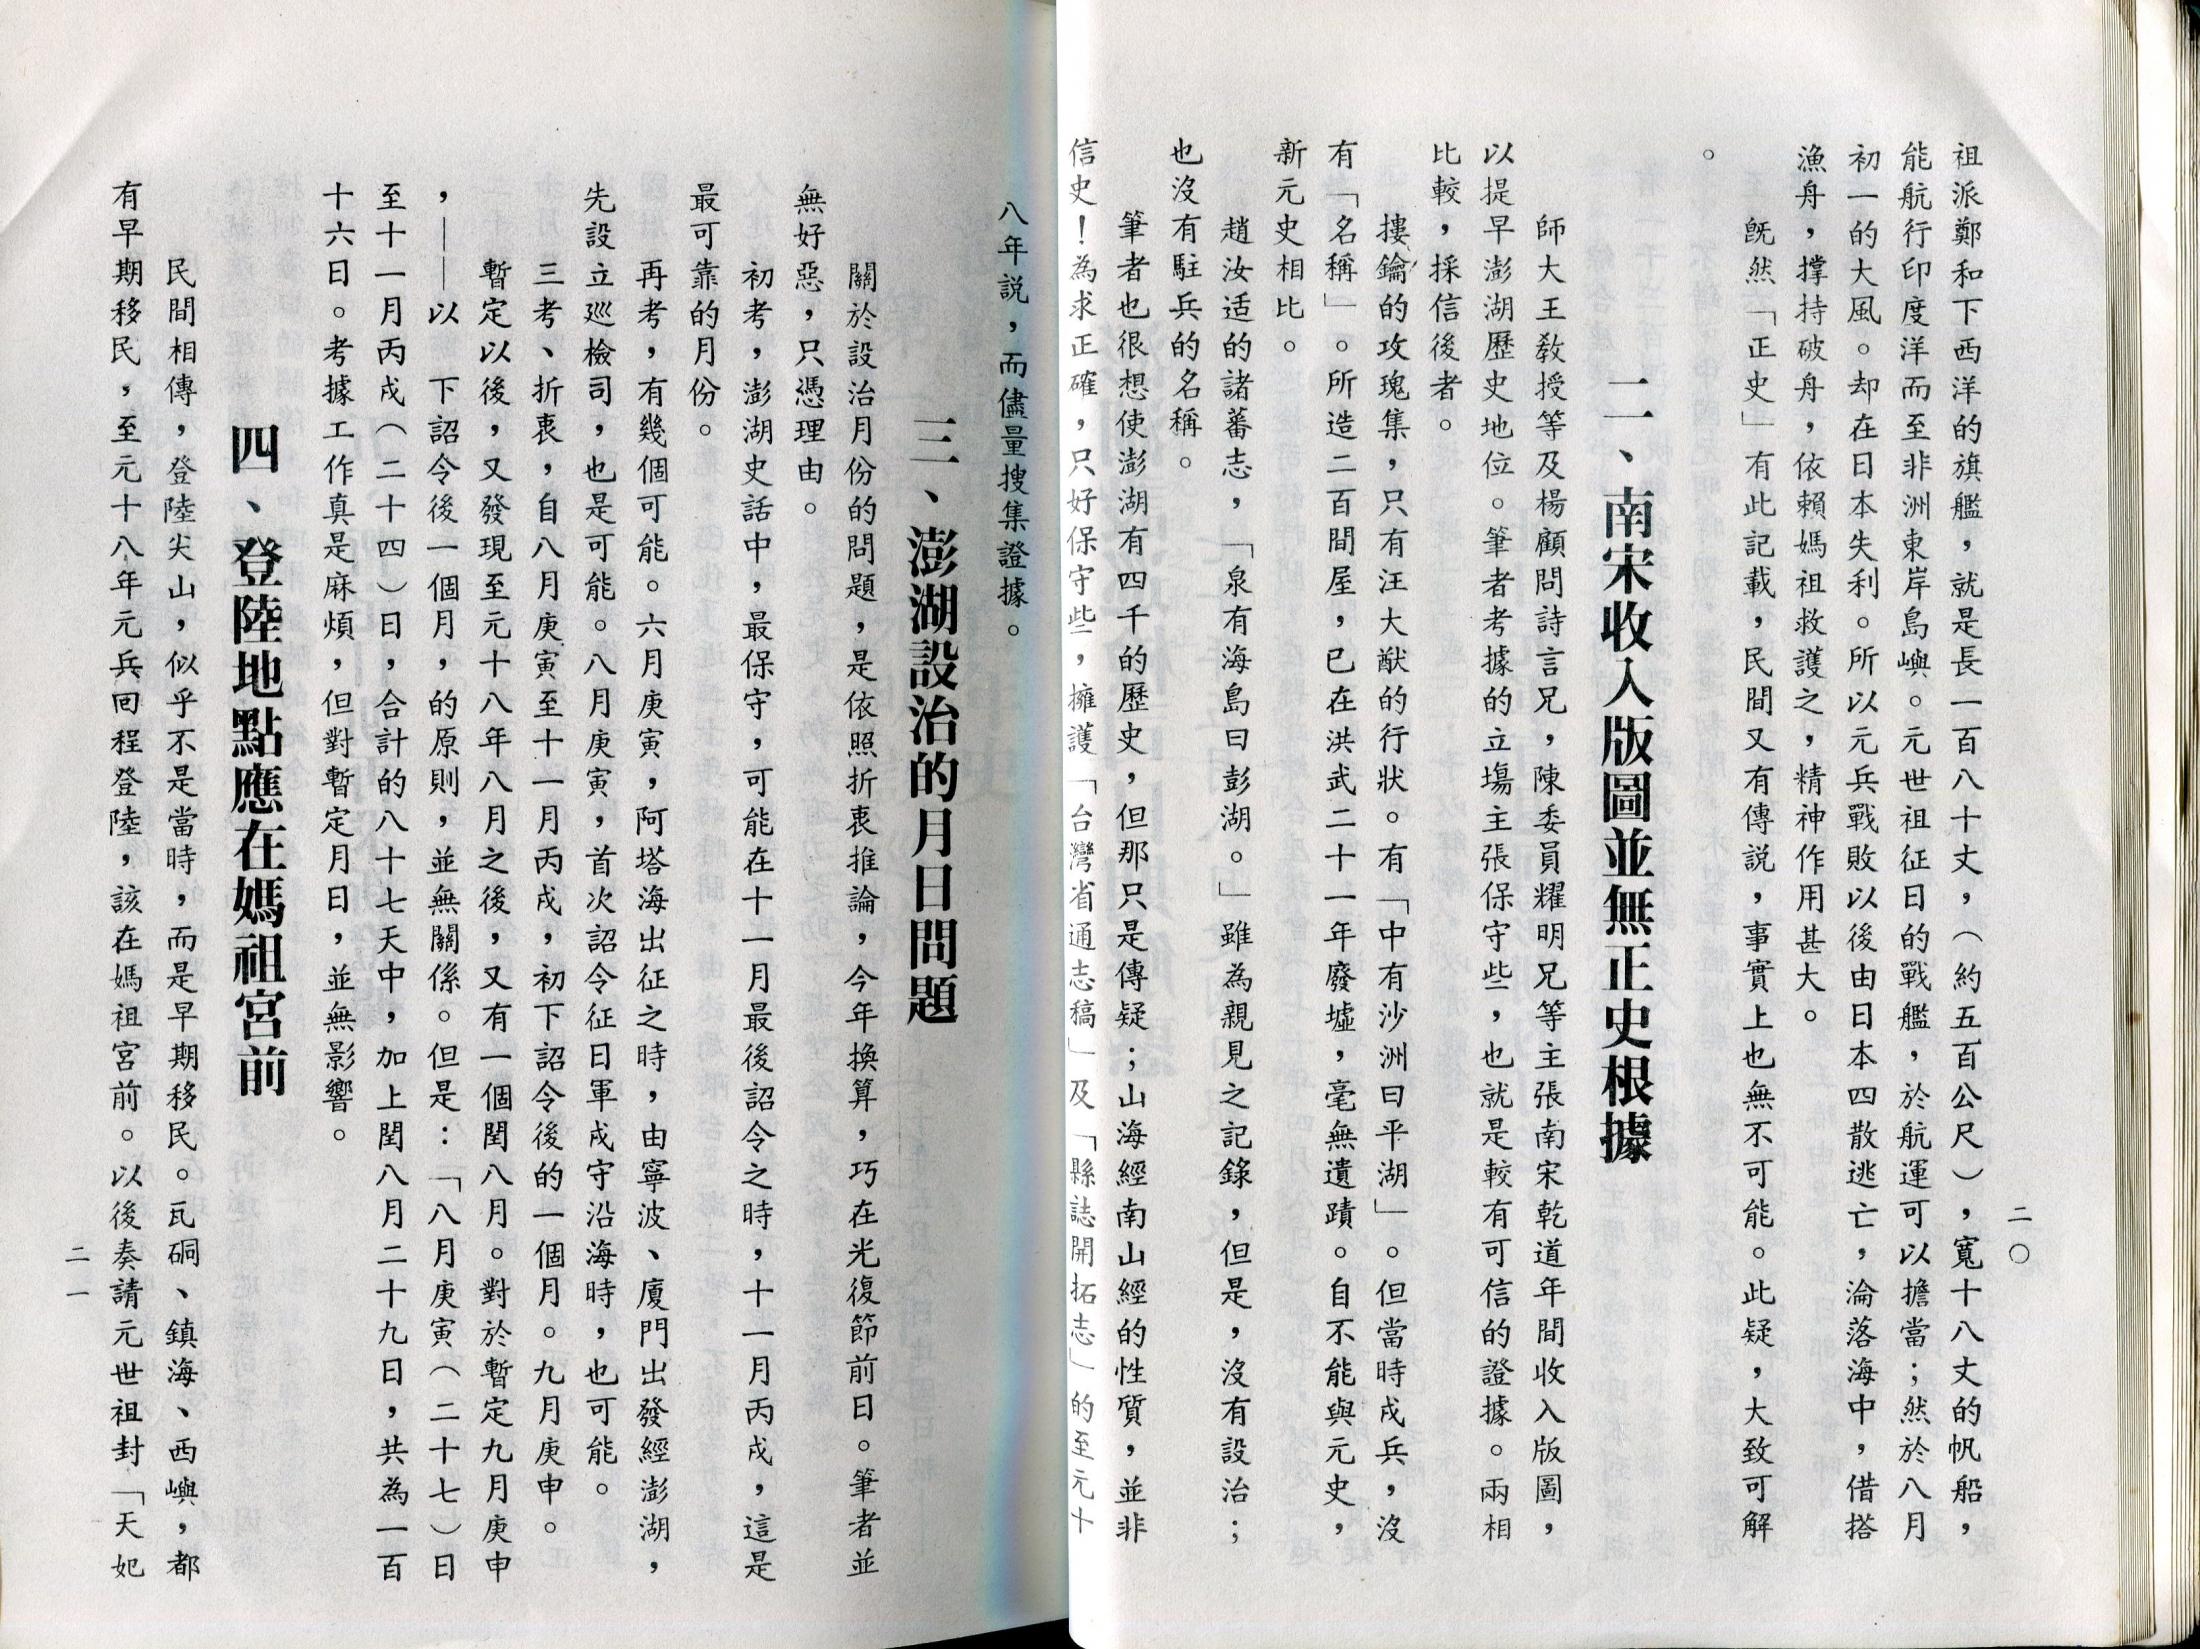 二〇
祖派鄭和下西洋的旗艦，就是長一百八十丈，（約五百公尺），寬十八丈的帆船，
能航行印度洋而至非洲東岸島嶼。元世祖征日的戰艦，於航運可以擔當；然於八月
初一的大風。却在日本失利。所以元兵戰敗以後由日本四散逃亡，淪落海中，借搭
漁舟，撑持破舟，依賴媽祖救護之，精神作用甚大。
既然「正史」有此記載，民間又有傳說，事實上也無不可能。此疑，大致可解
。
二、南宋收入版圖並無正史根據
師大王敎授等及楊顧問詩言兄，陳委員耀明兄等主張南宋乾道年間收入版圖，
以提早澎湖歷史地位。筆者考據的立場主張保守些，也就是較有可信的證據。兩相
比較，採信後者。
摟鑰的攻瑰集，只有汪大猷的行狀。有「中有沙洲曰平湖」。但當時戍兵，沒
有「名稱」。所造二百間屋，已在洪武二十一年廢墟，毫無遺蹟。自不能與元史，
新元史相比。
趙汝适的諸蕃志，「泉有海島曰彭湖。」雖為親見之記錄，但是，沒有設治；
也沒有駐兵的名稱。
筆者也很想使澎湖有四千的歷史，但那只是傳疑；山海經南山經的性質，並非
信史！為求正確，只好保守些，擁護「台灣省通志稿」及「縣誌開拓志」的至元十
八年說，而儘量搜集證據。
三、澎湖設治的月日問題
關於設治月份的問題，是依照折衷推論，今年換算，巧在光復節前日。筆者並
無好惡，只憑理由。
初考，澎湖史話中，最保守，可能在十一月最後詔令之時，十一月丙戍，這是
最可靠的月份。
再考，有幾個可能。六月庚寅，阿塔海出征之時，由寧波、廈門出發經澎湖，
先設立巡檢司，也是可能。八月庚寅，首次詔令征日軍戍守沿海時，也可能。
三考、折衷，自八月庚寅至十一月丙戍，初下詔令後的一個月。九月庚申。
暫定以後，又發現至元十八年八月之後，又有一個閏八月。對於暫定九月庚申
，——以　下詔令後一個月，的原則，並無關係。但是：「八月庚寅（二十七）日
至十一月丙戍（二十四）日，合計的八十七天中，加上閏八月二十九日，共為一百
十六日。考據工作真是麻煩，但對暫定月日，並無影響。
四、登陸地點應在媽祖宮前
民間相傳，登陸尖山，似乎不是當時，而是早期移民。瓦硐、鎮海、西嶼，都
有早期移民，至元十八年元兵回程登陸，該在媽祖宮前。以後奏請元世祖封「天妃
二一